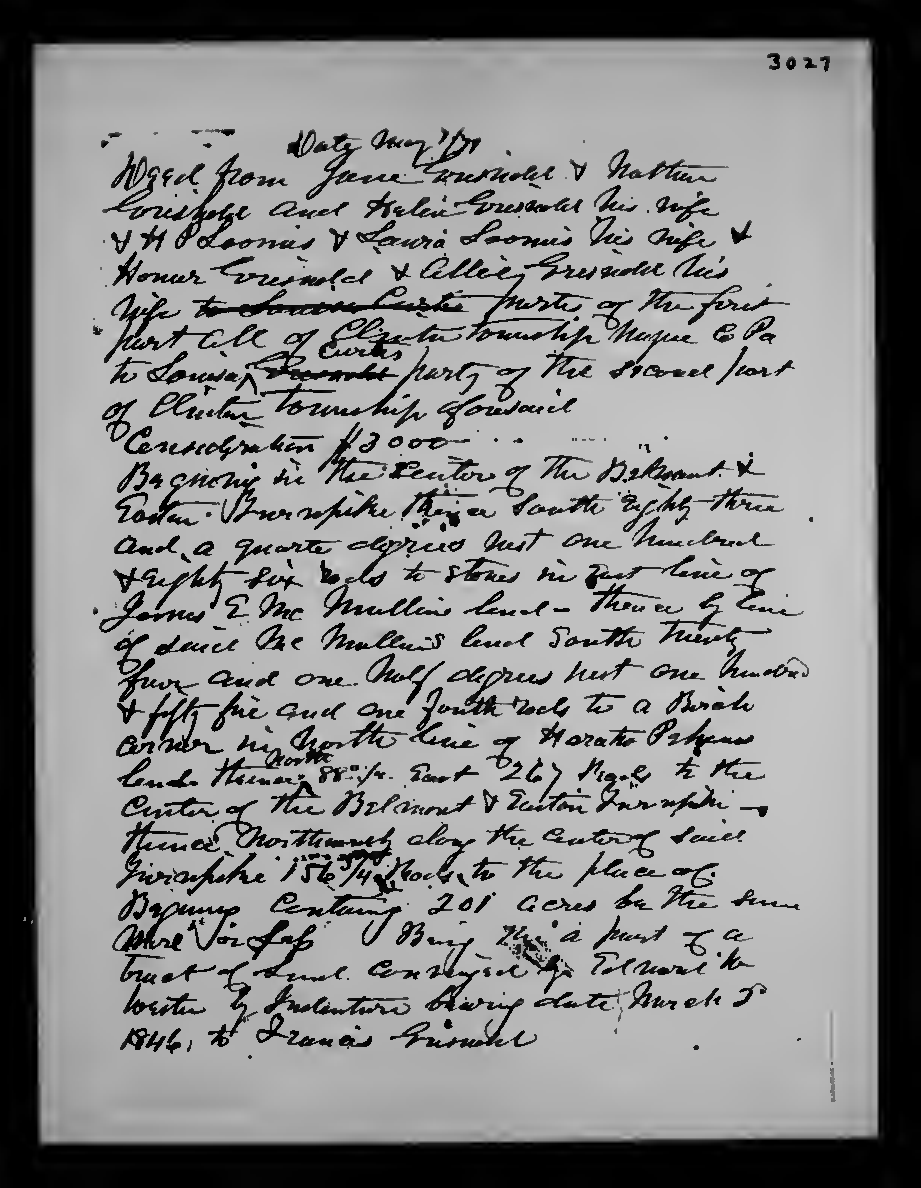 3027
Date May 1/71
Deed from Jane Griswold & Nathan
Griswold and Helen Griswold his wife
& H P Loomis & Laura Loomis his wife &
Homer Griswold & Allie Griswold his
wife to Louisa Curtis parties of the first
part all of Clinton Township Wayne Co Pa
to Louisa Curtis Griswold party of the second part
of Clinton Township aforesaid
Consideration $3000
Begining in the Center of the Belmont &
Easton Turnpike thence South Eighty three
and a quarter degrees west one hundred
& Eighty six rods to stones in East line of
James E Mc Mullin land - thence by line
of said Mc Mullins land South Twenty
four and one half degrees west one hundred
& fifty five and one fourth rods to a Birch
corner in North line of Horatio
lands thence North 88° 1/4 East 267 Rods to the
Center of the Belmont & Easton Turnpike -
thence along the center of said
Turnpike 156 3/4 Rods to the place of
Begining Containg 201 acres be the same
more or less Being a part of a
tract of land conveyed by Edward W
by Indenture bearing date March 5
1846, to Francis Griswold